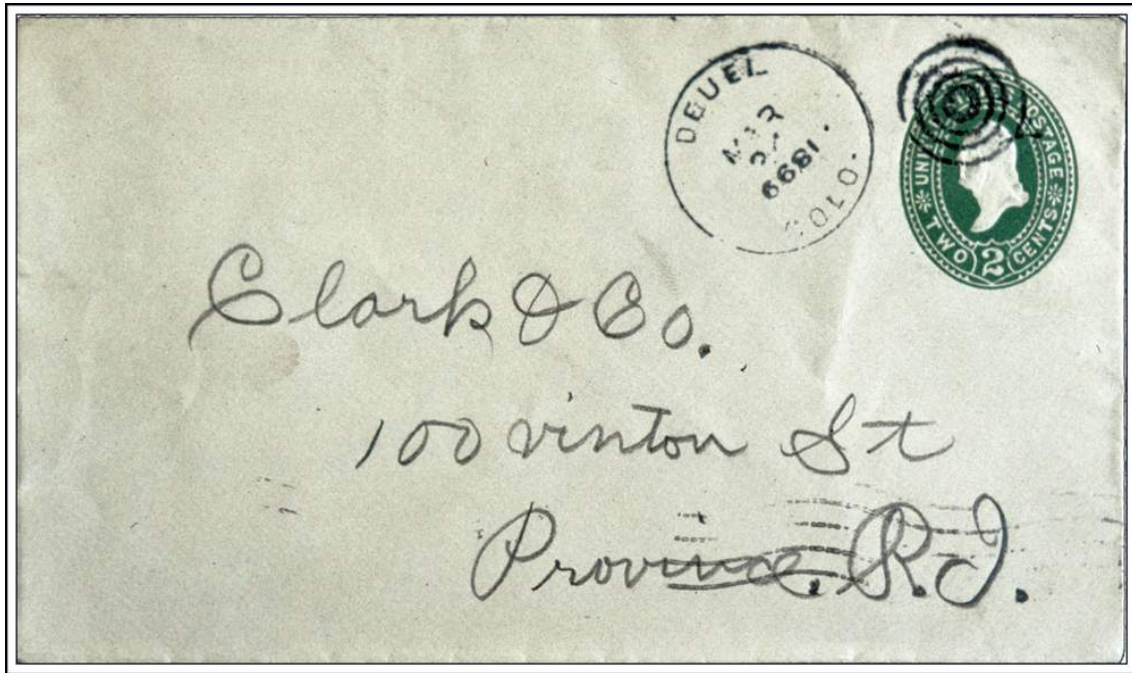 DEUEL
MAR
1899.
COLO.
UNITED STATES POSTAGE
TWO 2 CENTS
Clark & Co.
100 vinton St
Province. R.I.